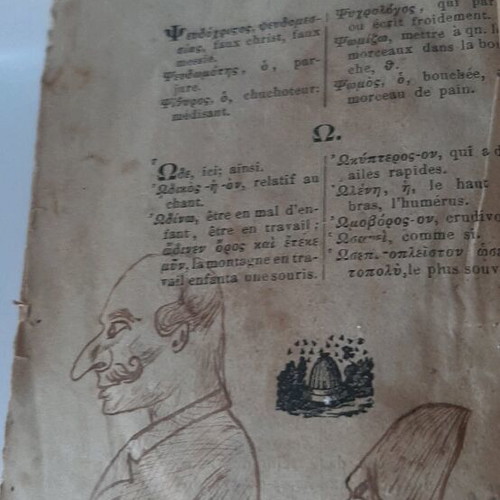 Ψευδόχριστος, ψευδομεσ-
σίας, faux christ, faux
messie.
Ψευδωμότης, ὁ, par-
jure.
Ψίθυρος, ὁ, chuchoteur:
médisant.
Ψυχρολόγος, qui par
ou écrit froidement.
Ψωμίζω, mettre à qn. l
morceaux dans la bou
che, θ.
Ψωμὸς, ὁ, bouchée,
morceau de pain.
Ω.
Ὧδε, ici; ainsi.
Ὠδικὸς-ή-όν, relatif au
chant.
Ὠδίνω, être en mal d'en-
fant, être en travail;
ὤδινεν ὄρος καὶ ἔτεκε
μῦν, la montagne en tra-
vail enfanta une souris.
Ὠκύπτερος-ον, qui a d
ailes rapides.
Ὠλένη, ἡ, le haut
bras, l'humérus.
Ὠμοβόρος-ον, crudivo
comme si.
-οπλεῖστον ὡσε
τοπολὺ, le plus souv